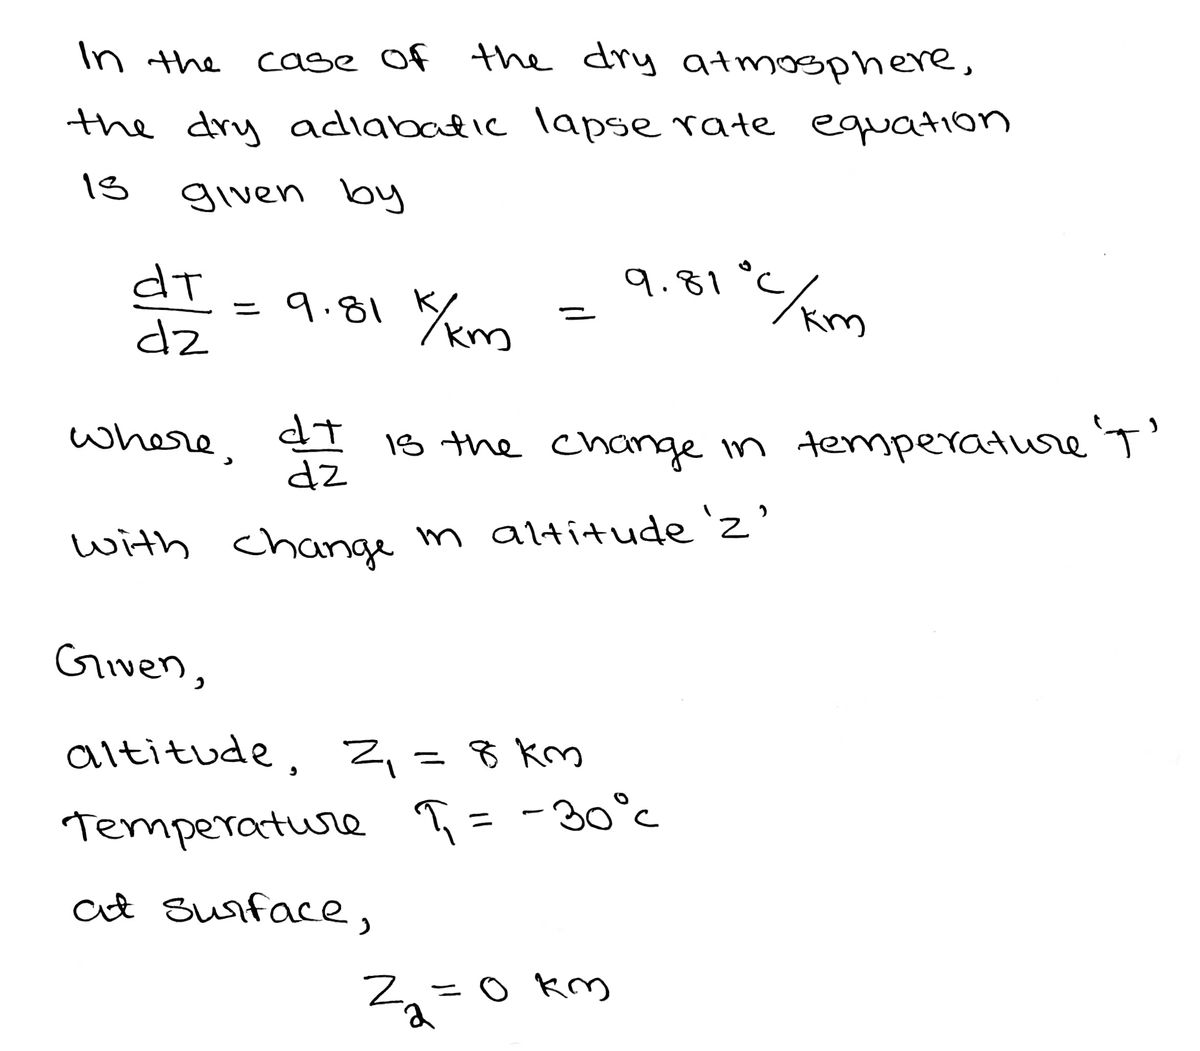 In the case of the dry atmosphere,
the dry adiabatic lapse rate equation
is given by
dT/dz = 9.81 K/km = 9.81 °C/km
where, dT/dz is the change in temperature 'T'
with change in altitude 'z'
Given,
altitude, Z₁ = 8 km
Temperature T₁ = -30°C
at surface,
Z₂ = 0 km